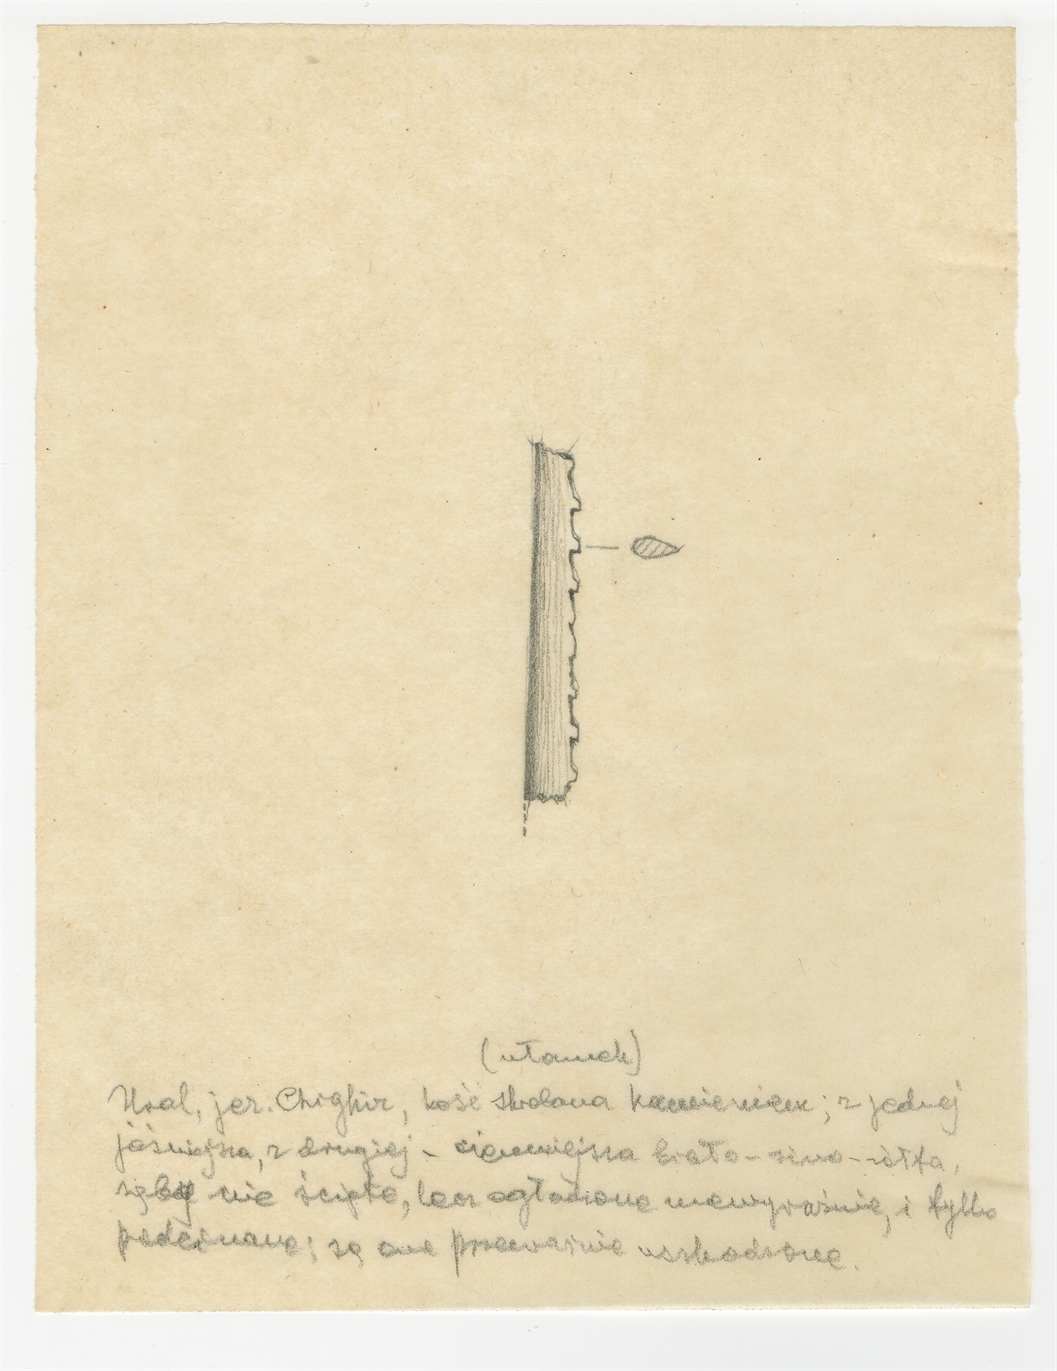 (ułamek)
Ural, jez. Chighir, kość skolona kamieniem; z jednej
jaśniejsza, z drugiej - ciemniejsza biało-siwo-żółta,
zęby nie ścięte, lecz ogładzone niewyraźnie, i tylko
podcinane; są one przeważnie uszkodzone.